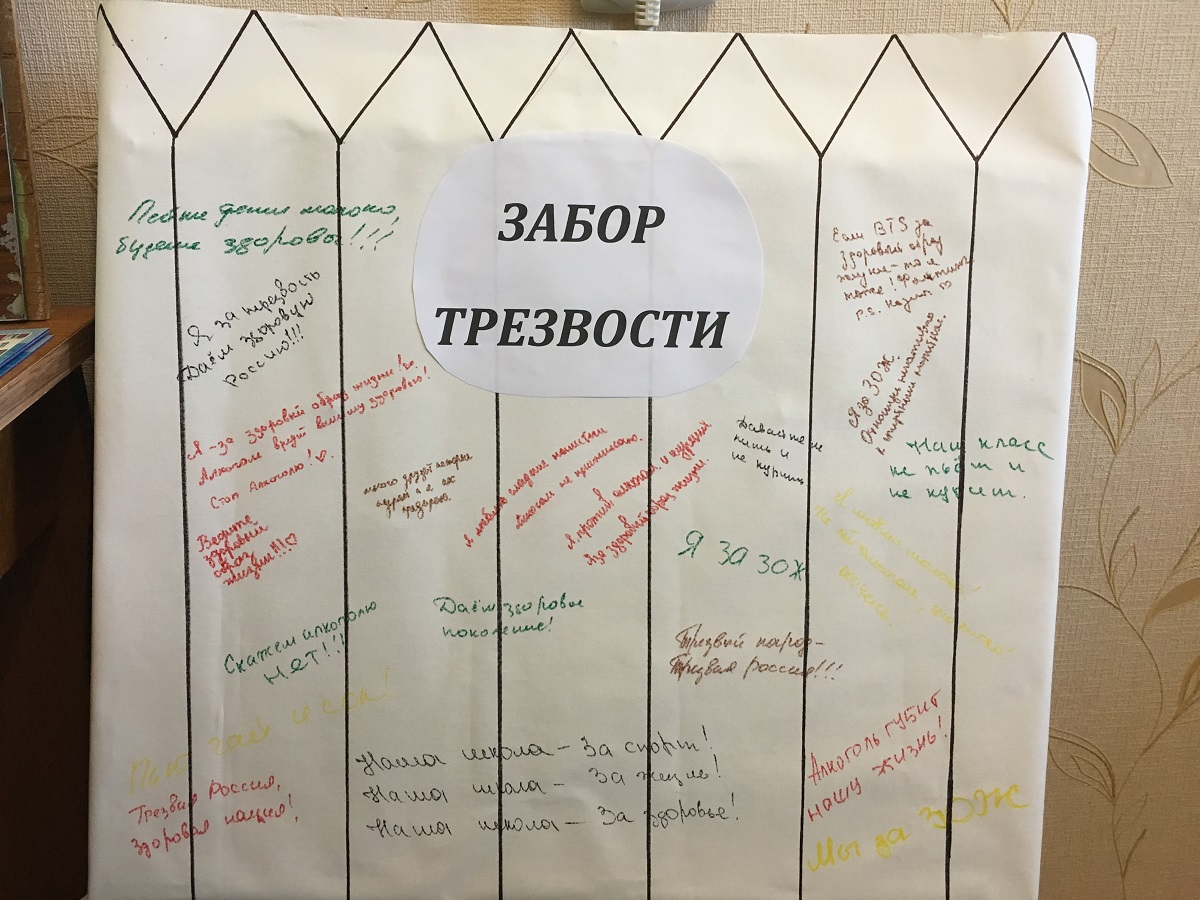 ЗАБОР
ТРЕЗВОСТИ
Пейте дети молоко,
будете здоровы!!!
Я за трезвость
Даём здоровую
Россию!!!
Я - за здоровый образ жизни!
Алкоголь вредит вашему здоровью!
Стоп Алкоголю!
Ведите
здоровый
образ
жизни!!!
много друзей
курят а я их
Я люблю сладкие напитки
Алкоголь не принимаю.
Я против алкоголя и курения
Я за здоровый образ жизни.
Давайте не
пить и
не курить
Если BTS за
здоровый образ
жизни - то я
тоже!
P.S.
Я за ЗОЖ.
Отношусь негативно
к спиртным напиткам.
Наш класс
не пьёт и
не курит.
Я ЗА ЗОЖ
Я люблю молоко!
Скажем алкоголю
НЕТ!!!
Даёшь здоровое
поколение!
Трезвый народ-
Трезвая Россия!!!
Пью чай и сок!
Трезвая Россия,
здоровая нация!
Наша школа - За спорт!
Наша школа - За жизнь!
Наша школа - За здоровье!
Алкоголь губит
нашу жизнь!
Мы за ЗОЖ